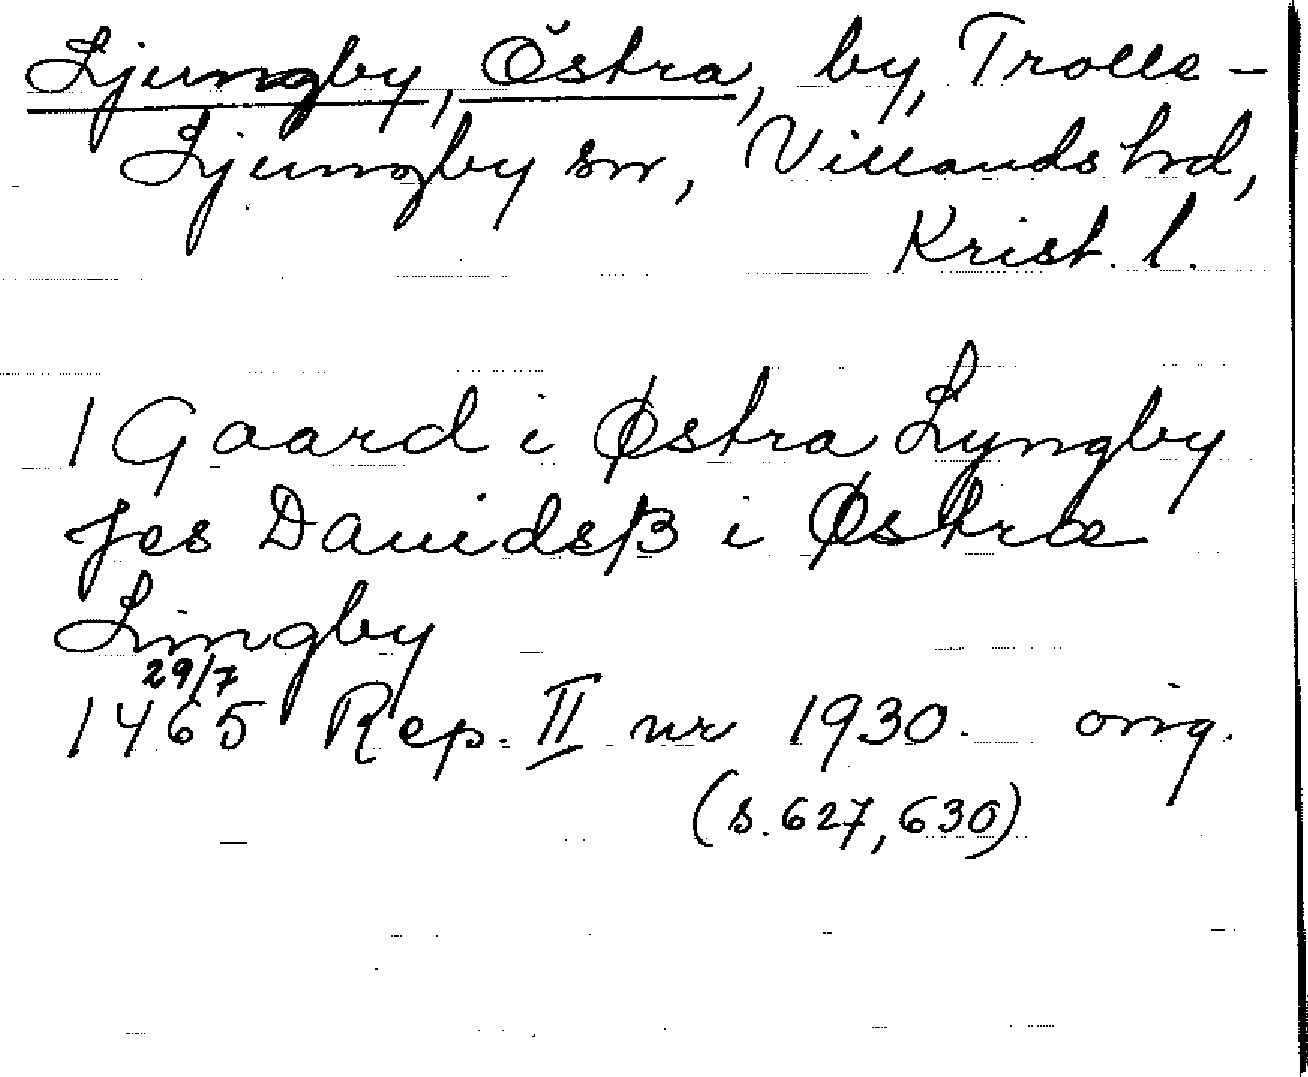 Ljungby, Östra, by, Trolle-
Ljungby sn, Villands hrd,
Krist. l.
1 Gaard i Østra Lyngby
Jes Dauidsβ i Østræ
Lingby
29/7
1465 Rep. II nr 1930. orig.
(s. 627, 630)